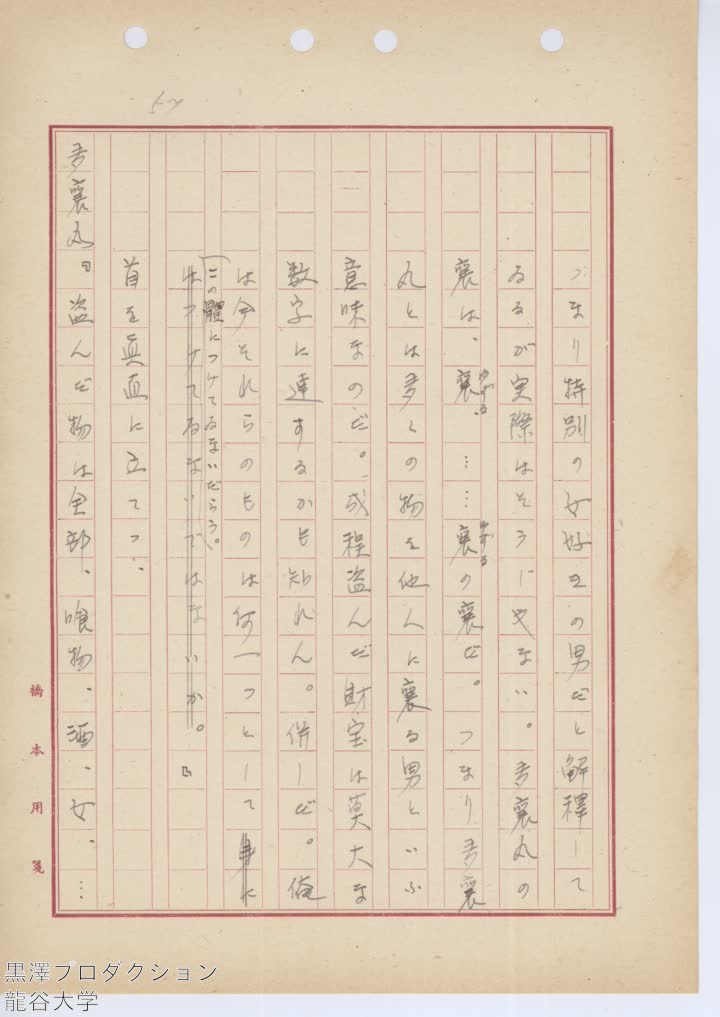 つまり特別の女好きの男だと解釋して
ゐるが実際はそうじやない。多襄丸の
襄は、襄、……襄の襄だ。つまり多襄
ゆずる
ゆずる
丸とは多くの物を他人に襄る男といふ
意味なのだ。成程盗んだ財宝は莫大な
数字に達するかも知れん。併しだ。俺
は今それらのものは何一つとして身に
この體につけてゐないだらう。
はつけてゐないではないか。』
首を真直に立てつ、
多襄丸『盗んだ物は全部、喰物、酒、女、…
橋本用箋
黒澤プロダクション
龍谷大学